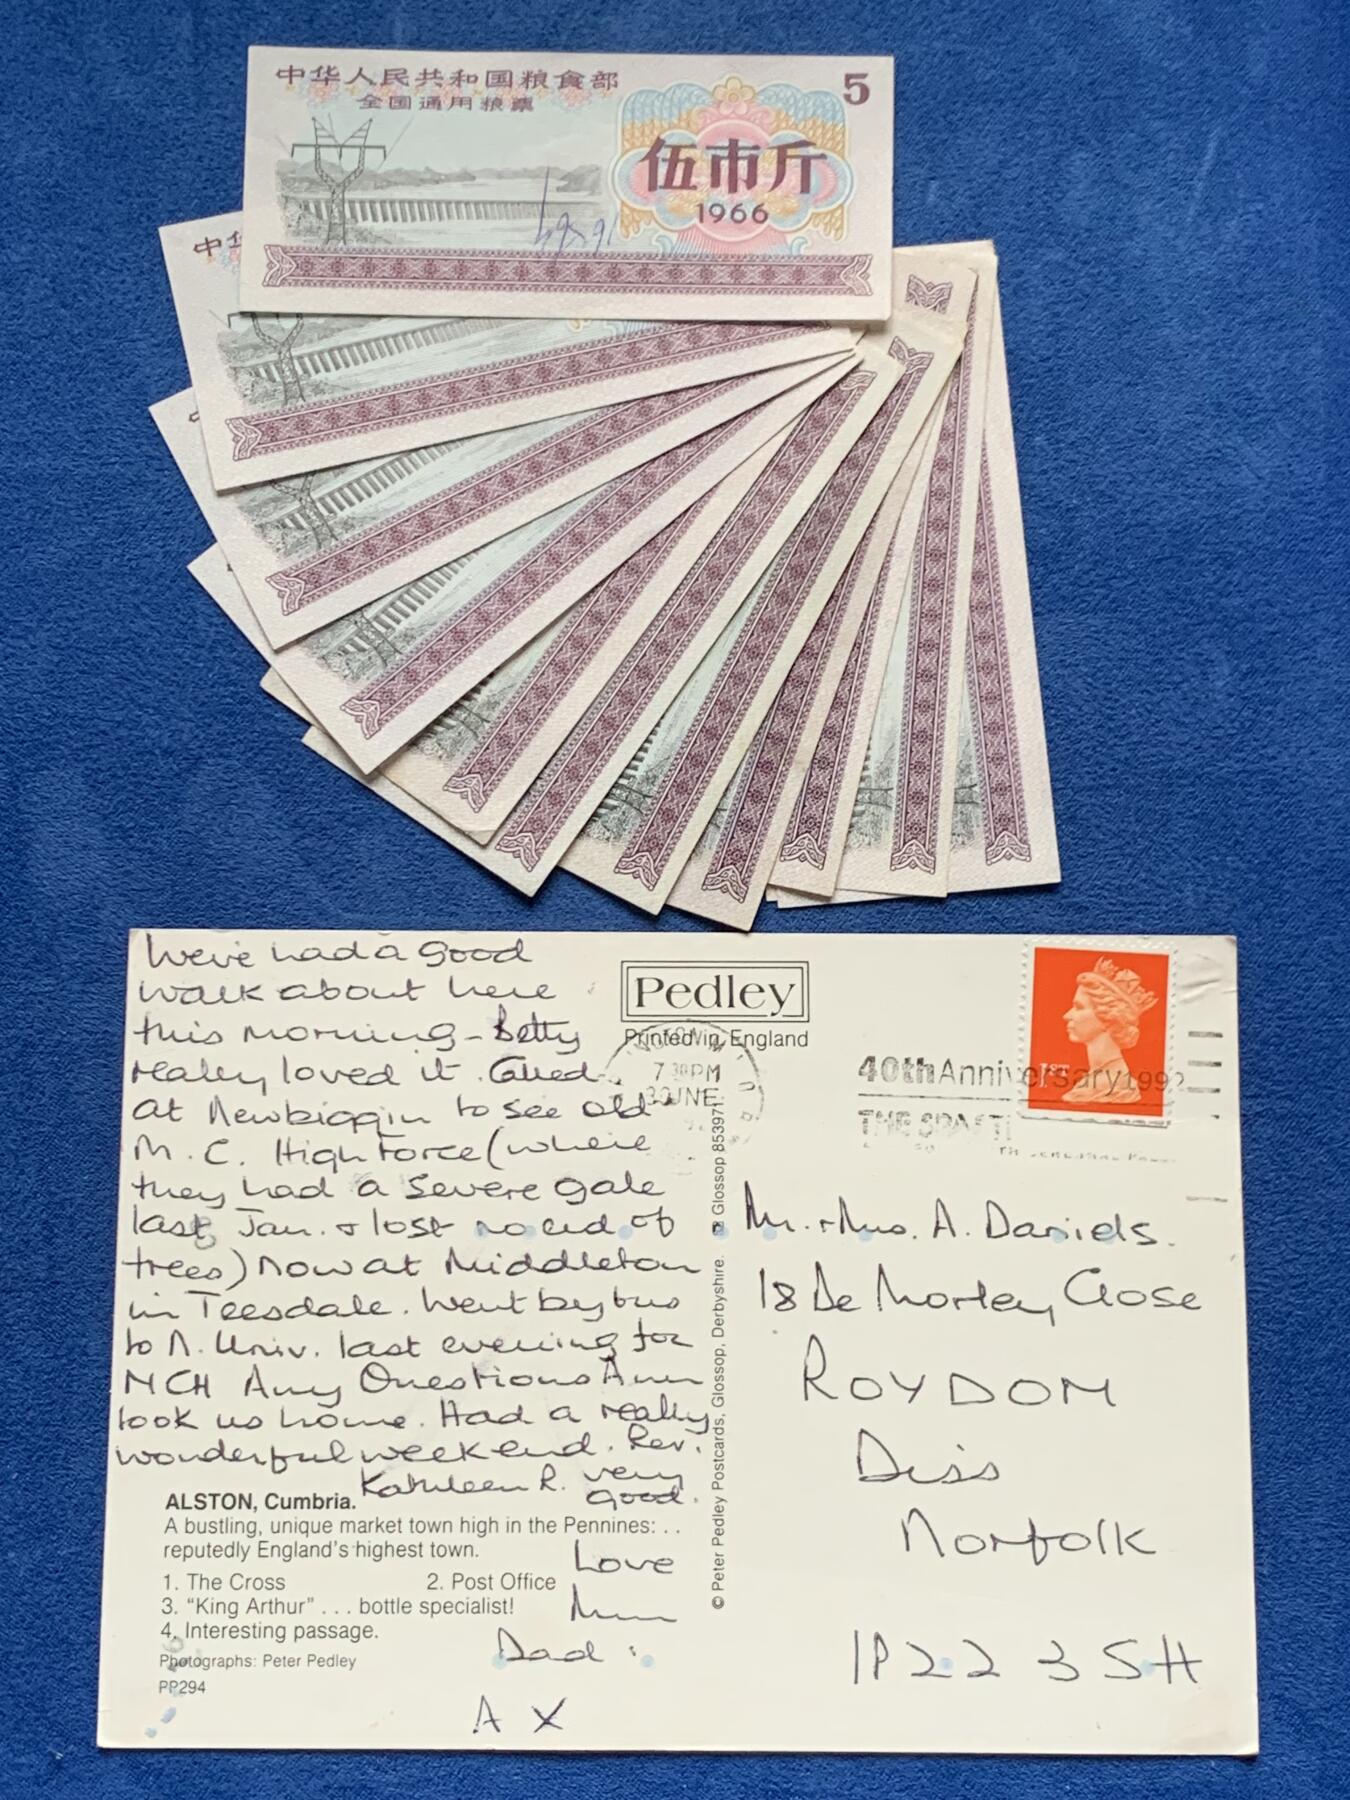 中华人民共和国粮食部
全国通用粮票
5
伍市斤
1966
中华
We've had a good
walk about here
this morning - Betty
really loved it. Called
at Newbiggin to see old
M. C. High Force (where
they had a severe gale
last Jan. & lost no end of
trees) Now at Middleton
in Teesdale. Went by bus
to N. Univ. last evening for
NCH Any Questions Ann
took us home. Had a really
wonderful weekend. Rev.
Kathleen R. very
good.
Love
Mum
Dad
A X
ALSTON, Cumbria.
A bustling, unique market town high in the Pennines: . .
reputedly England's highest town.
1. The Cross 2. Post Office
3. “King Arthur” . . . bottle specialist!
4. Interesting passage.
Photographs: Peter Pedley
PP294
Pedley
Printed in England
7.30PM
3 JUNE
© Peter Pedley Postcards, Glossop, Derbyshire. Glossop 853971
40th Anniversary 1992
THE
1ST
Mr. & Mrs. A. Daniels.
18 De Morley Close
ROYDON
Diss
Norfolk
IP22 3SH